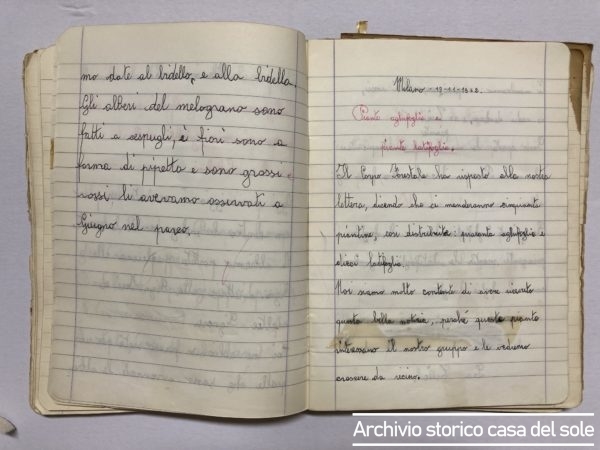 mo date al bidello, e alla bidella.
Gli alberi del melograno sono
fatti a cespugli, i fiori sono a
forma di pipetta e sono grassi e
rossi li avevamo osservati a
Giugno nel parco.
Milano - 19-11-
Piante aghifoglie e
piante latifoglie.
Il Corpo Forestale ha risposto alla nostra
lettera, dicendo che ci manderanno cinquanta
piantine, così distribuite quaranta aghifoglie e
dieci latifoglie.
Noi siamo molto contente di avere ricevuto
questa bella notizia, perché queste piante
interessano il nostro gruppo e le vedremo
crescere da vicino.
Archivio storico casa del sole